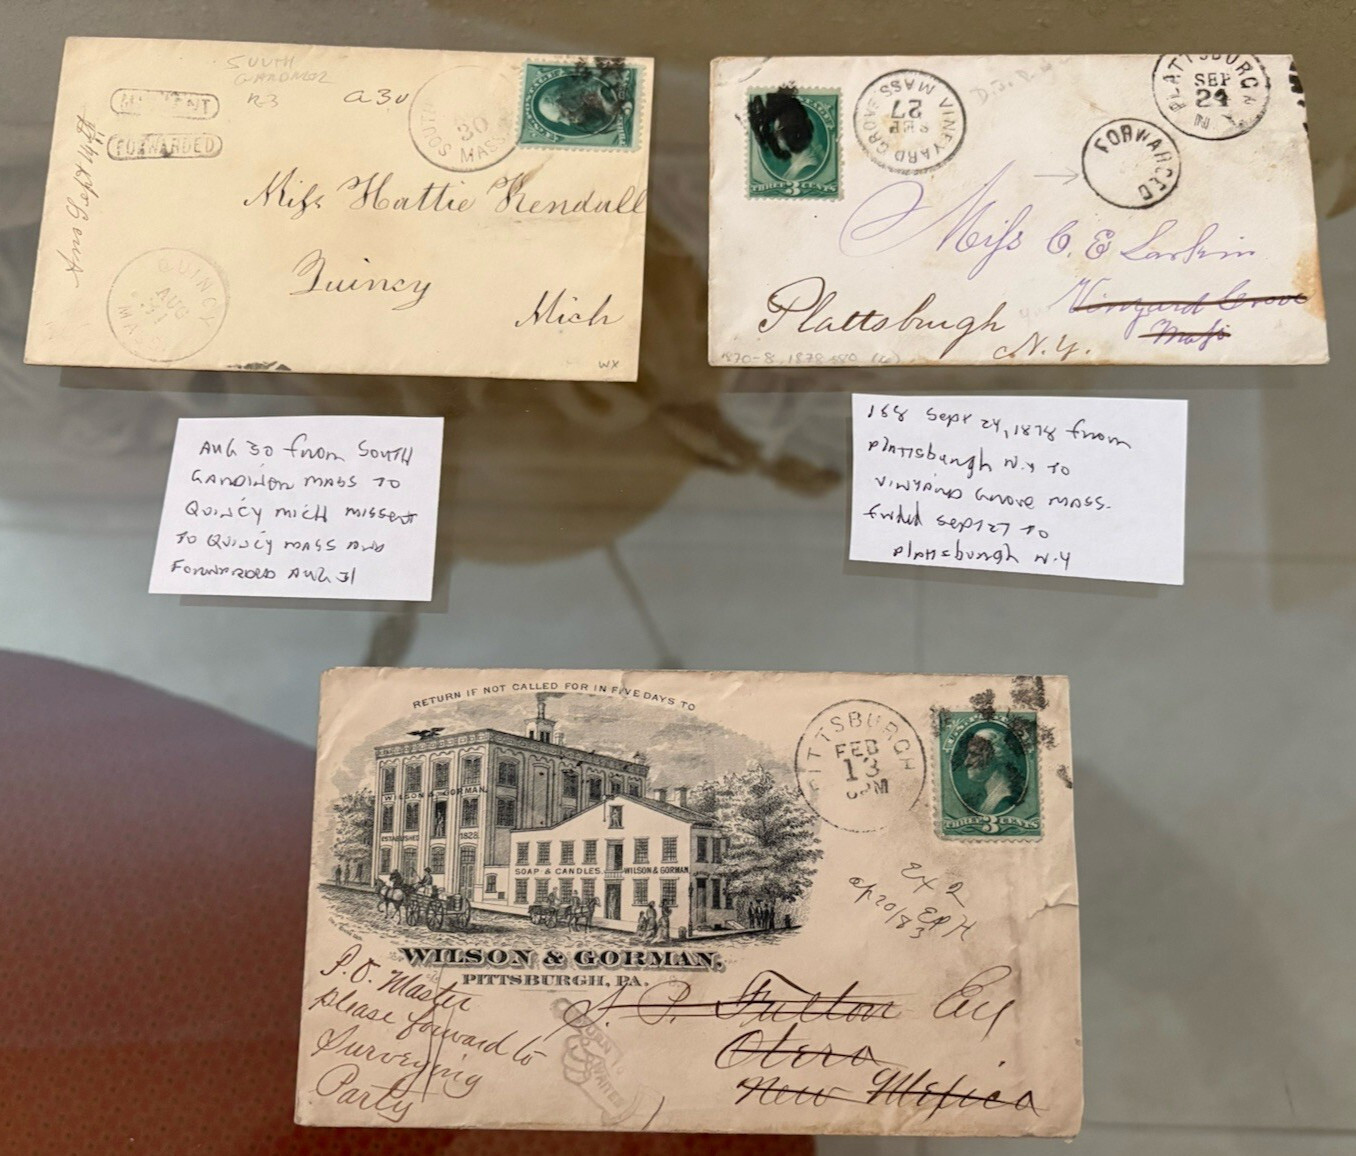 SOUTH
GARDNER
MISSENT
FORWARDED
SOUTH
30
MASS
Miss Hattie Kendall
Quincy
Mich
QUINCY
AUG
31
MASS
WX
THREE 3 CENTS
VINEYARD GROVE
MASS
SEP
27
PLATTSBURGH
SEP
24
FORWARDED
Miss C. E Larkin
Vineyard Grove
Mass
Plattsburgh
N.Y.
AUG 30 from SOUTH
GARDINER MASS TO
QUINCY MICH MISSENT
TO QUINCY MASS AND
FORWARDED AUG 31
188 Sept 24, 1878 from
Plattsburgh N.Y TO
VINYARD Grove MASS.
fwded Sept 27 to
Plattsburgh N.Y
RETURN IF NOT CALLED FOR IN FIVE DAYS TO
WILSON & GORMAN.
ESTABLISHED 1828.
SOAP & CANDLES. WILSON & GORMAN
WILSON & GORMAN.
PITTSBURGH, PA.
PITTSBURGH
FEB
13
6PM
THREE 3 CENTS
EX 2
P. O. Master
please forward to
Surveying
Party
Fulton Esq
Otero
New Mexico